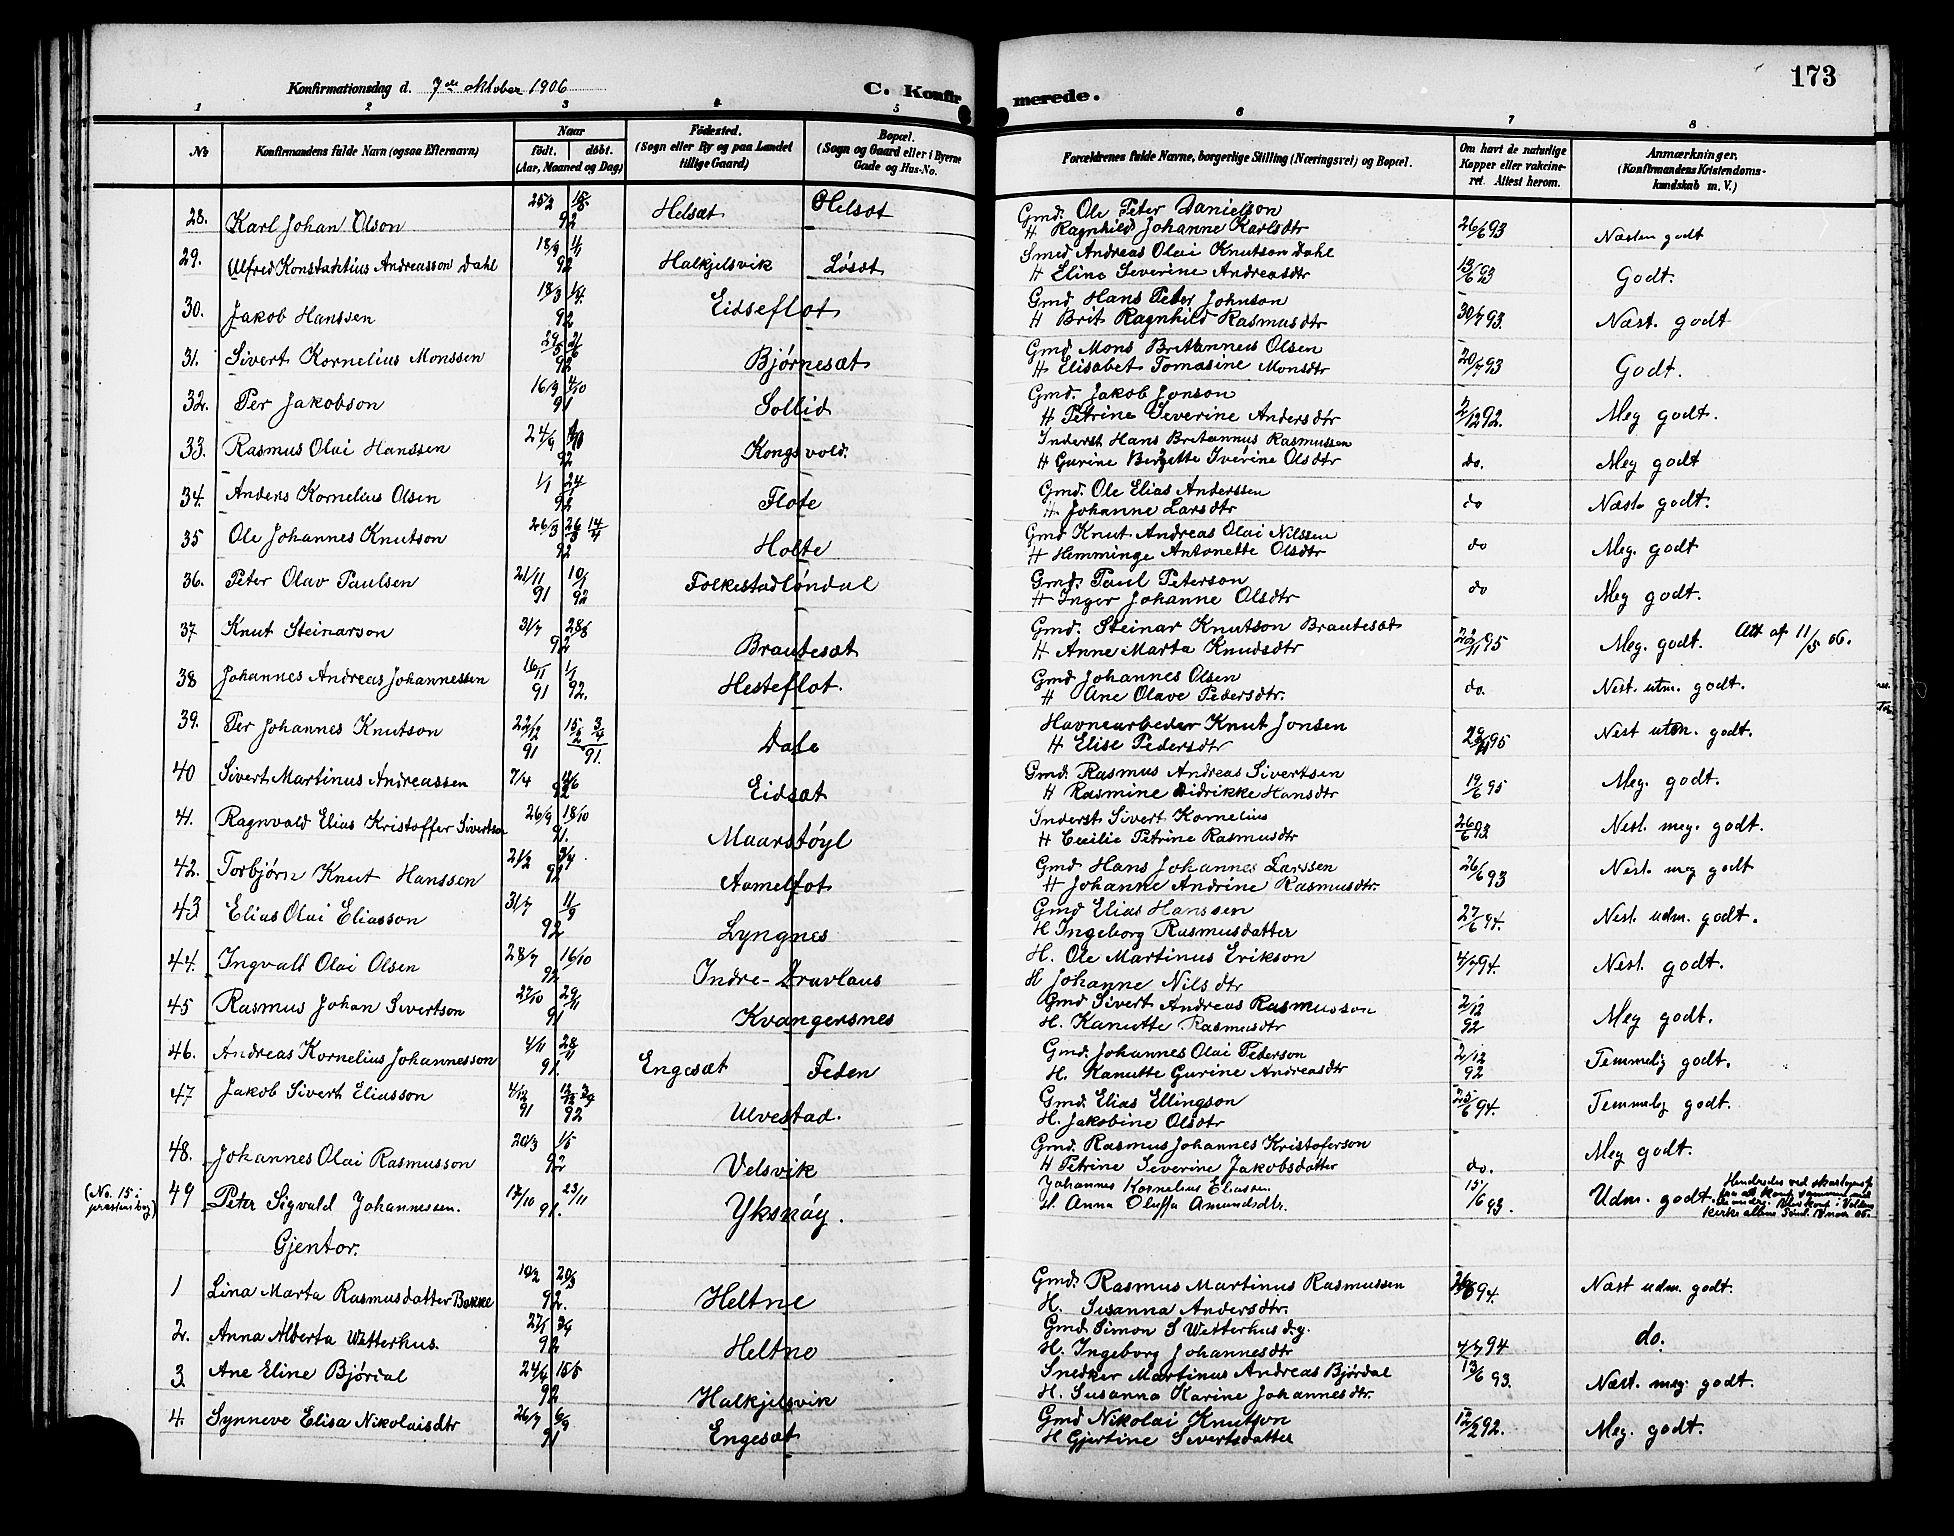 173
Konfirmationsdag d. 7de oktober 1906
C. Konfirmerede.
1 2 3 4 5 6 7 8
No
Konfirmandens fulde Navn (ogsaa Efternavn)
Naar
født. døbt.
(Aar, Maaned og Dag)
Fødested.
(Sogn eller By og paa Landet
tillige Gaard)
Bopæl.
(Sogn og Gaard eller i Byerne
Gade og Hus-No.
Forældrenes fulde Navne, borgerlige Stilling (Næringsvei) og Bopæl.
Om havt de naturlige
Kopper eller vakcine-
ret. Attest herom.
Anmærkninger.
(Konfirmandens Kristendoms-
kundskab m. V.)
28. Karl Johan Olson 92 Helsæt Helsæt
Gmd. Ole Peter Danielson
H Ragnhild Johanne Karlsdtr 26/6 93 Næsten godt
29. Alfred Konstantius Andreasson Dahl 18/9 92 Halkjelsvik Løsæt
Smed Andreas Olai Knutson Dahl
H Eline Severine Andreasdtr 13/6 93 Godt.
30. Jakob Hanssen 18/3 92 Eidseflot
Gmd. Hans Peter Johnson
H Brit Ragnhild Rasmusdtr 30/7 93. Næst. godt
31. Sivert Kornelius Monssen 92 Bjørnesæt
Gmd Mons Britannus Olsen
H Elisabet Tomasine Monsdtr 20/7 93 Godt.
32. Per Jakobson 16/9 4/10 91 Sollid
Gmd. Jakob Jonson
H Petrine Severine Andersdtr 2/12 92. Meg godt.
33. Rasmus Olai Hanssen 24/9 92 Kongsvold.
Inderst Hans Britannus Rasmussen
H Gurine Bergette Iverine Olsdtr do. Meg godt
34. Anders Kornelius Olsen 1/1 92 Flote
Gmd. Ole Elias Anderssen
H. Johanne Larsdtr do Næst. godt.
35 Ole Johannes Knutson 26/3 26/3 14/4 92 Holte
Gmd Knut Andreas Olai Nilssen
H Hemminge Antonette Olsdtr do Meg. godt
36. Peter Olav Paulsen 21/11 91 10/1 92 Folkestadløndal
Gmd. Paul Peterson
H Inger Johanne Olsdtr do Meg godt.
37 Knut Steinarson 31/7 28/8 92 Brautesæt
Gmd. Steinar Knutson Brautesæt
H Anne Marta Knudsdtr 22/11 95 Meg. godt. Att af 11/5 06.
38 Johannes Andreas Johannessen 16/11 91 1/1 92. Hesteflot.
Gmd Johannes Olsen
H Ane Olave Pedersdtr. do. Nest. utm. godt.
39. Per Johannes Knutson 22/2 91 15/2 3/4 91. Dale
Havnearbeder Knut Jonsen
H Elise Pedersdtr 95 Nest utm. godt.
40 Sivert Martinus Andreassen 7/4 92 Eidsæt
Gmd. Rasmus Andreas Sivertsen
H Rasmine Didrikke Hansdtr 19/6 95 Meg. godt.
41. Ragnvald Elias Kristoffer Sivertson 26/9 18/10 91. Maarstøyl
Inderst Sivert Kornelius
H Cecilie Petrine Rasmusdtr 26/6 93 Nest. meg. godt.
42. Torbjørn Knut Hanssen 21/2 92 Aamelfot
Gmd Hans Johannes Larssen
H Johanne Andrine Rasmusdtr. 26/6 93 Nest. meg godt
43 Elias Olai Eliasson 31/7 11/9 92 Lyngnes
Gmd Elias Hanssen
H Ingeborg Rasmusdatter 27/6 94. Nest. udm. godt.
44. Ingvald Olai Olsen 28/7 16/10 92 Indre-Dravlaus
H. Ole Martinus Erikson
H Johanne Nilsdtr 4/7 94. Nest. godt.
45 Rasmus Johan Sivertson 27/10 29/11 91 Kvangersnes
Gmd Sivert Andreas Rasmusson
H. Kanutte Rasmusdtr 2/12 92 Meg godt.
46. Andreas Kornelius Johannesson 4/11 28/11 91. Engesæt Feden
Gmd. Johannes Olai Pederson
H. Kanutte Gurine Andreasdtr 2/12 92 Temmelig godt.
47 Jakob Sivert Eliasson 4/12 91 92 Ulvestad.
Gmd. Elias Ellingson
H. Jakobine Olsdtr 25/6 94. Temmelig godt.
48. Johannes Olai Rasmusson 20/3 1/5 92 Velsvik
Gmd. Rasmus Johannes Kristoferson
H Petrine Severine Jakobsdatter do. Meg godt.
(No. 15 i
prestens bog)
49 Peter Sigvald Johannessen. 17/10 23/11 91. Yksnøy.
Johannes Kornelius Eliassen
H. Anna Oluffa Amundsdtr. 15/6 93. Udm. godt.
Hindredes ved
fra at konf. sammen med
de andre. Blev konf. i Volden
kirke
Gjentor.
1 Lina Marta Rasmusdatter Bakke 10/2 20/3 92. Heltne
Gmd. Rasmus Martinus Rasmussen
H. Susanna Andersdtr. 94. Næst udm. godt.
2. Anna Alberta Wetterhus. 27/1 92 Heltne
Gmd Simon S Wetterhus d.y.
H. Ingeborg Johannesdtr 4/7 94 do.
3. Ane Eline Bjørdal 24/4 15/5 92 Halkjelsvik
Snedker Martinus Andreas Bjørdal
H. Susanna Karine Johannesdtr. 13/6 93. Næst. meg. godt.
4. Synneve Elisa Nikolaisdtr 26/7 6/9 91 Engesæt
Gmd Nikolai Knutson
H Gjertine Sivertsdatter 12/2 92. Meg. godt.